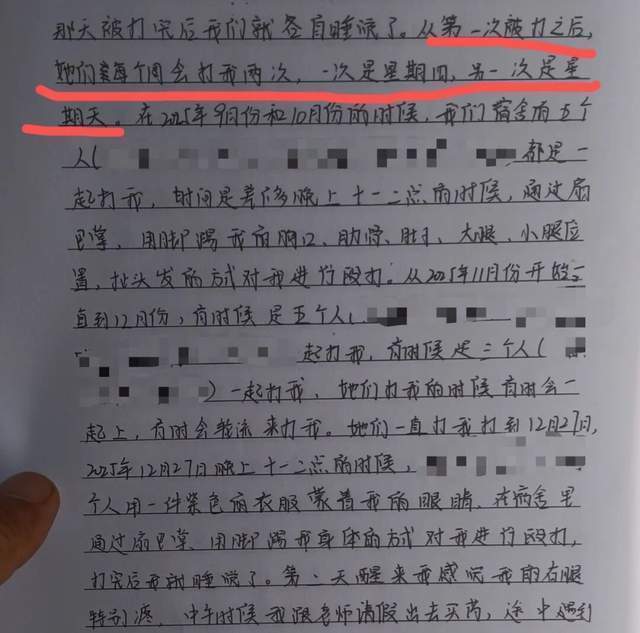 那天被打完后我们就各自睡觉了。从第一次被打之后,
她们每个周会打我两次,一次是星期四,另一次是星
期天。在2025年9月份和10月份的时候,我们宿舍有五个
人(都是一
起打我,时间是差不多晚上十一二点的时候,通过扇
巴掌、用脚踢我的胸口、肋骨、肚子、大腿、小腿位
置,扯头发的方式对我进行殴打。从2025年11月份开始一
直到12月份,有时候是五个人(
一起打我,有时候是三个人(
)一起打我,她们打我的时候有时会一
起上,有时会轮流来打我。她们一直打我打到12月27日,
2025年12月27日晚上十一二点的时候,
个人用一件紫色的衣服蒙着我的眼睛,在宿舍里
通过扇巴掌、用脚踢我身体的方式对我进行殴打,
打完后我就睡觉了。第二天醒来我感觉我的右腿
特别疼,中午时候我跟老师请假出去买药,途中遇到